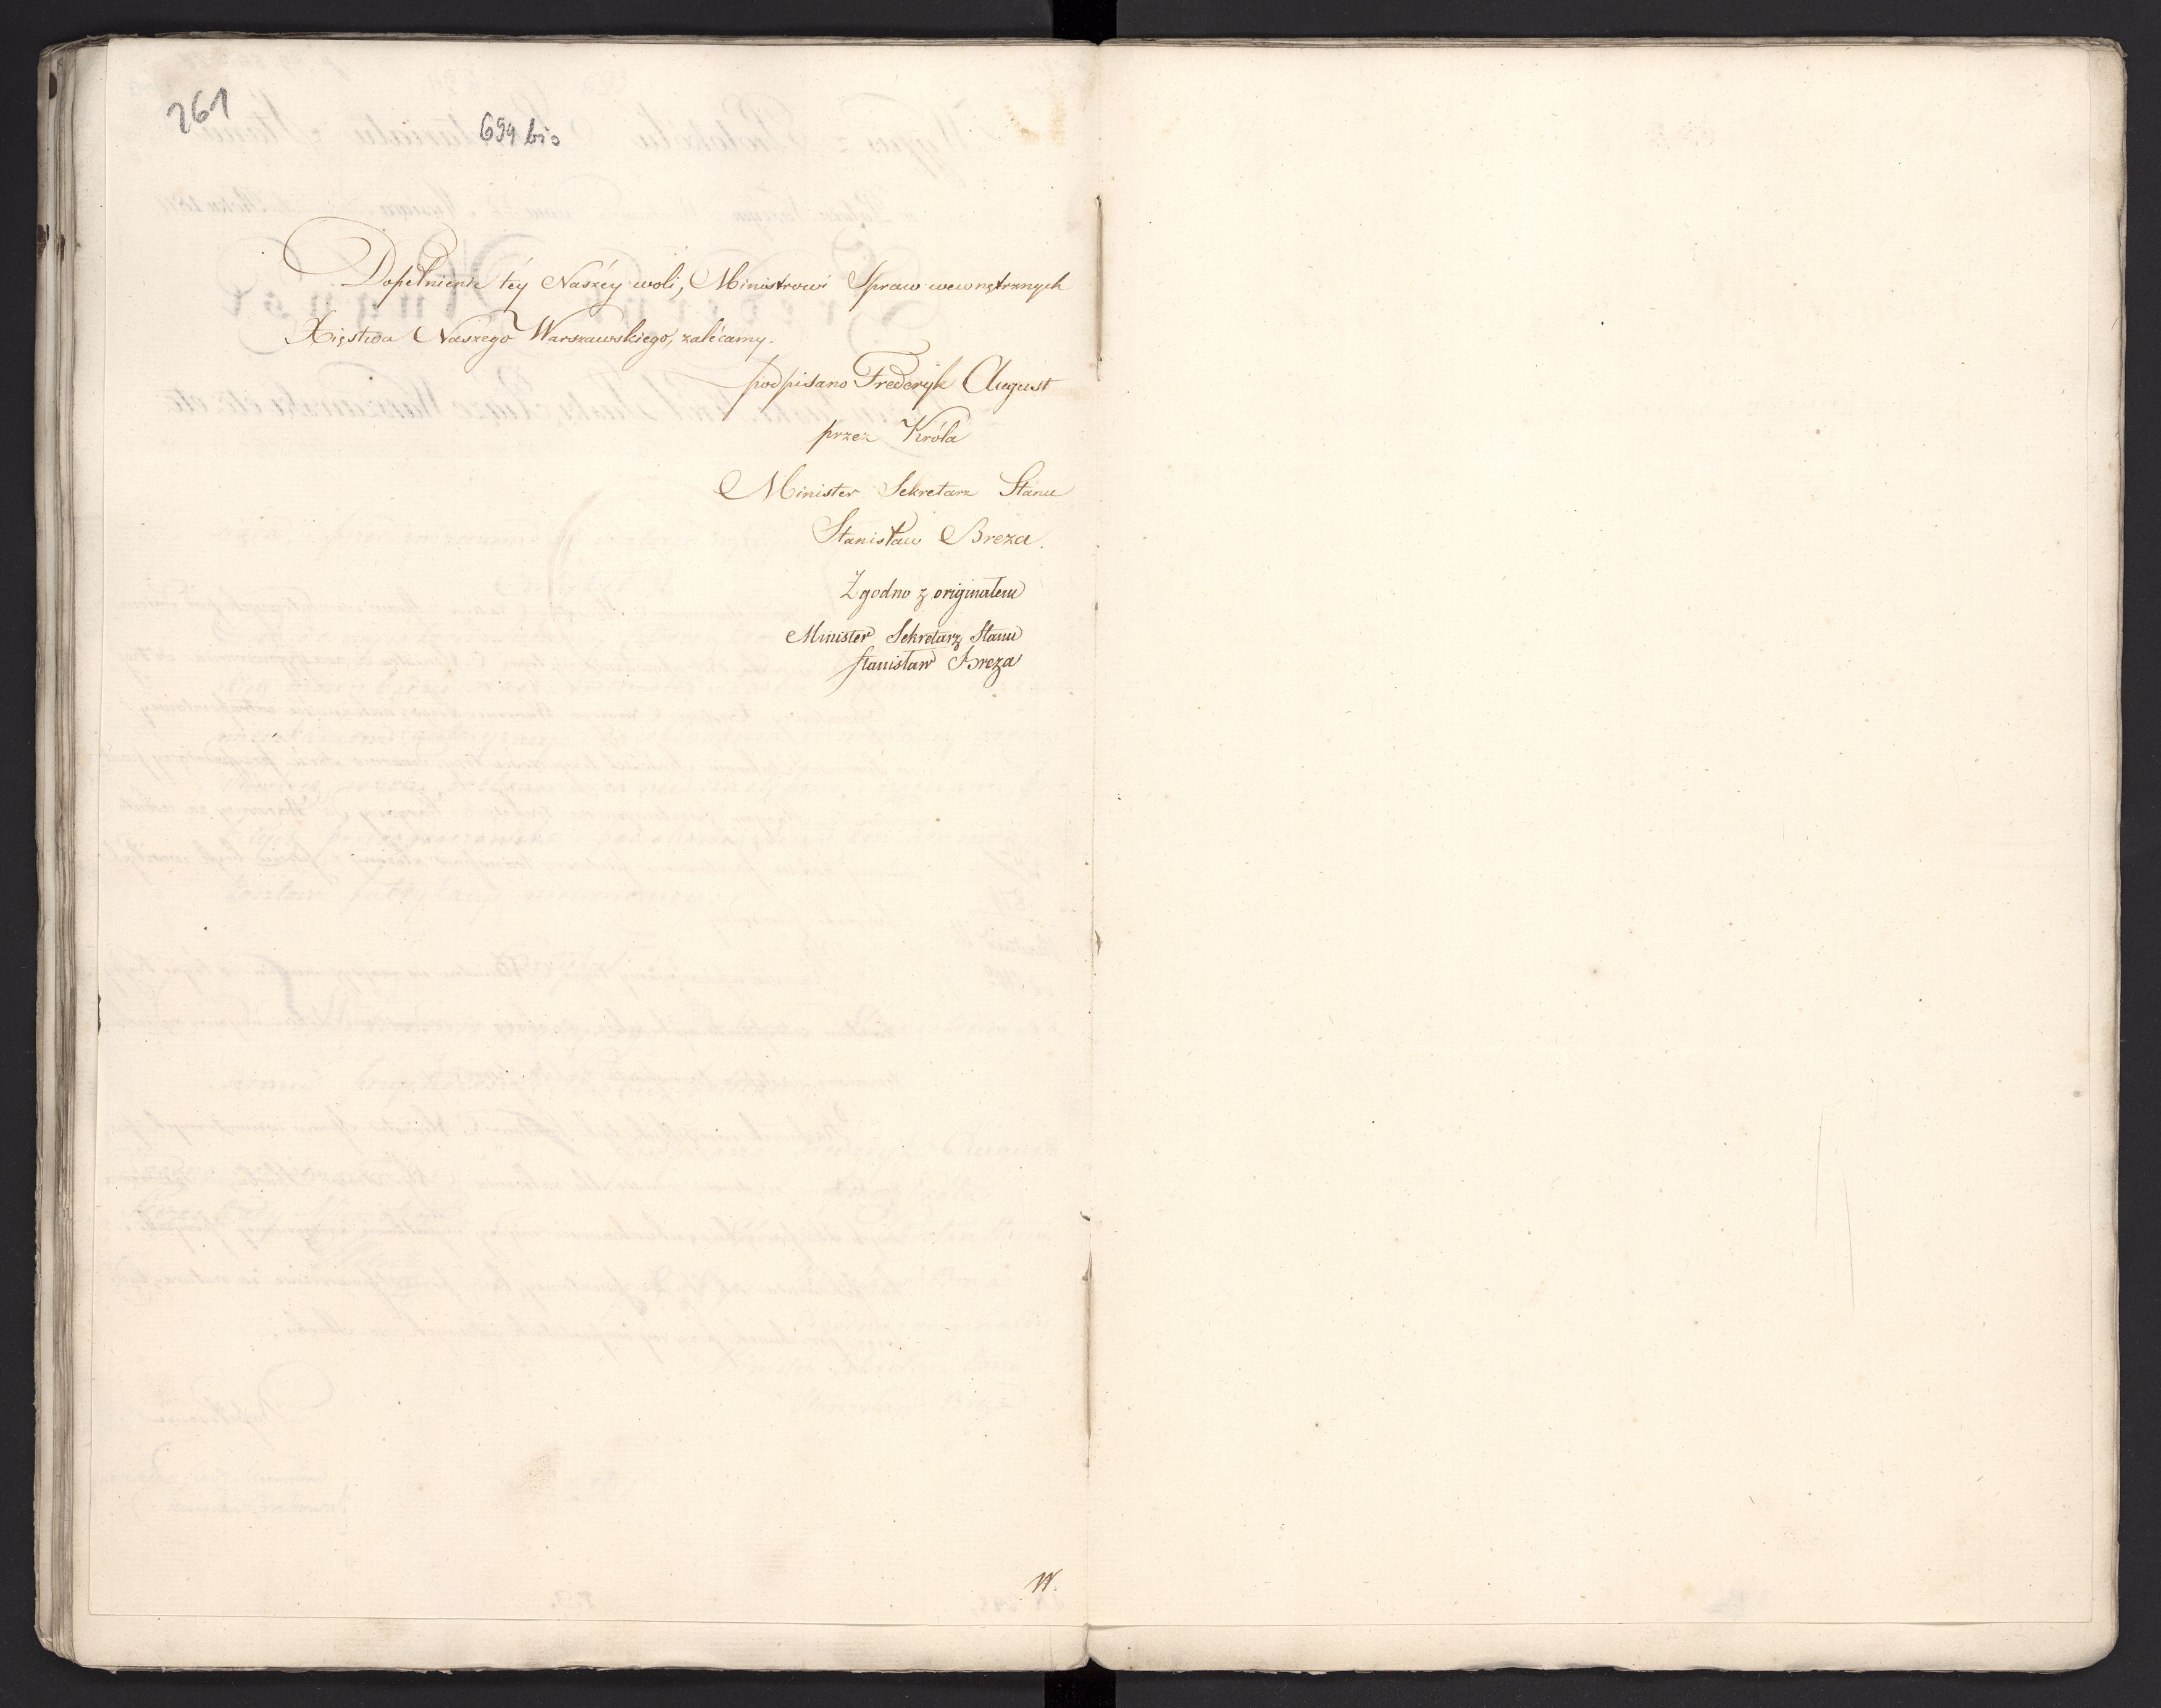 261
699 bis
Dopełnienie téy Naszéy woli, Ministrowi Spraw wewnętrznych
Xięstwa Naszego Warszawskiego, zalécamy.
podpisano Frederyk August
przez Króla
Minister Sekretarz Stanu
Stanisław Breza.
Zgodno z originałem
Minister Sekretarz Stanu
Stanisław Breza
W.